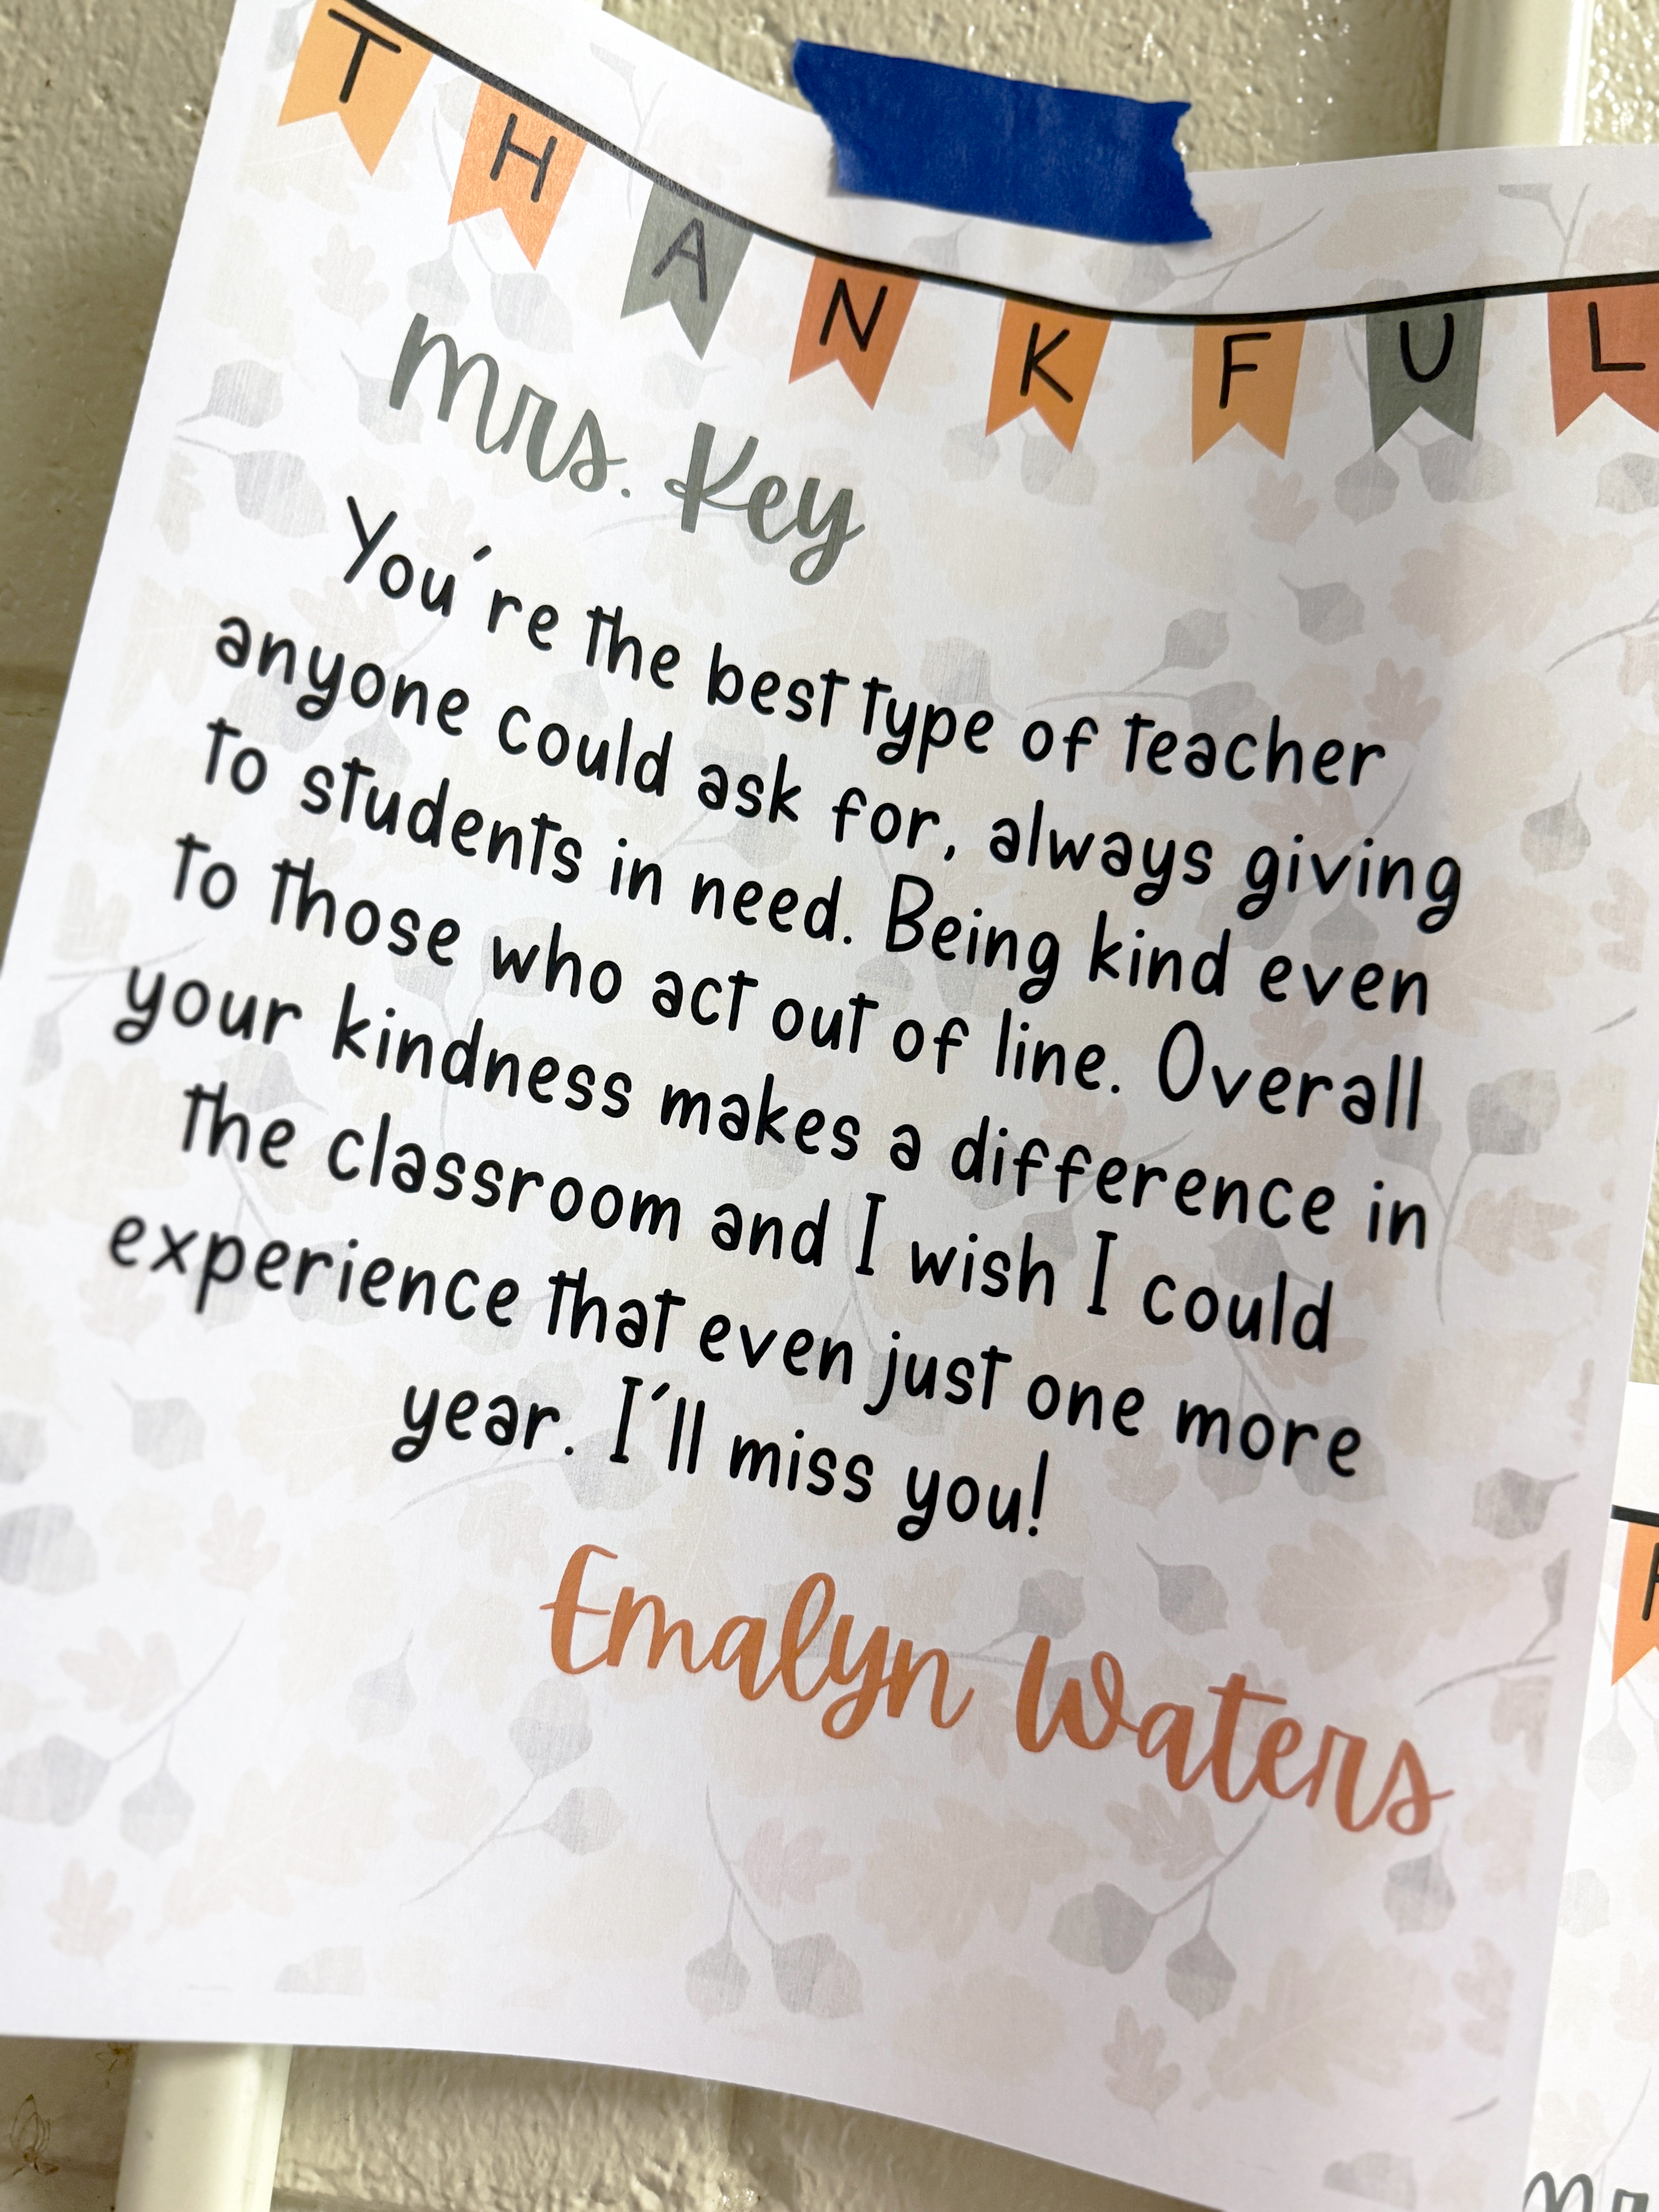 THANKFUL
Mrs. Key
You're the best type of teacher
anyone could ask for, always giving
to students in need. Being kind even
to those who act out of line. Overall
your kindness makes a difference in
the classroom and I wish I could
experience that even just one more
year. I'll miss you!
Emalyn Waters